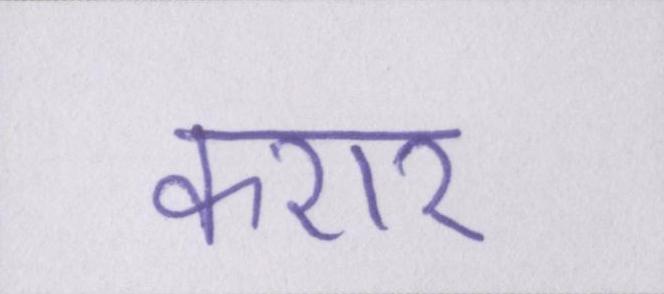 करार